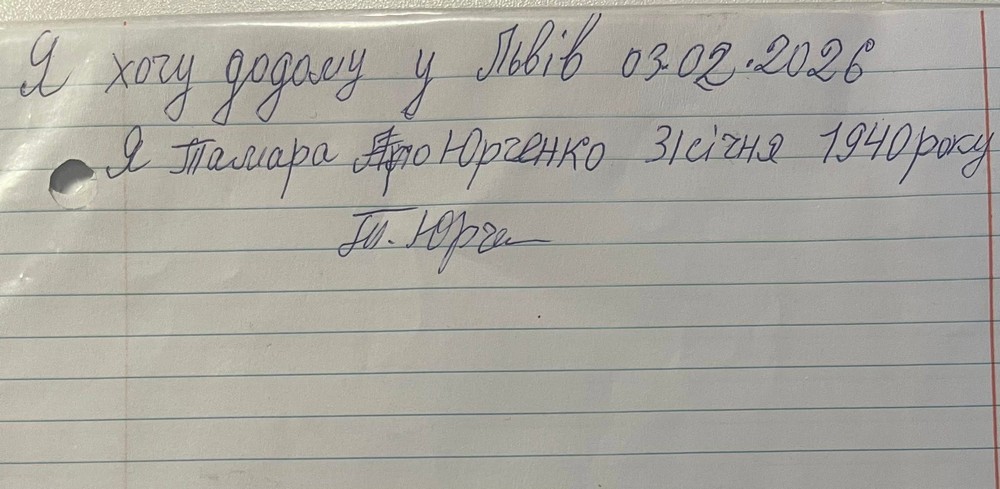 Я хочу додому у Львів 03.02.2026
Я Тамара Юрченко 31 січня 1940 року
Т. Юрче